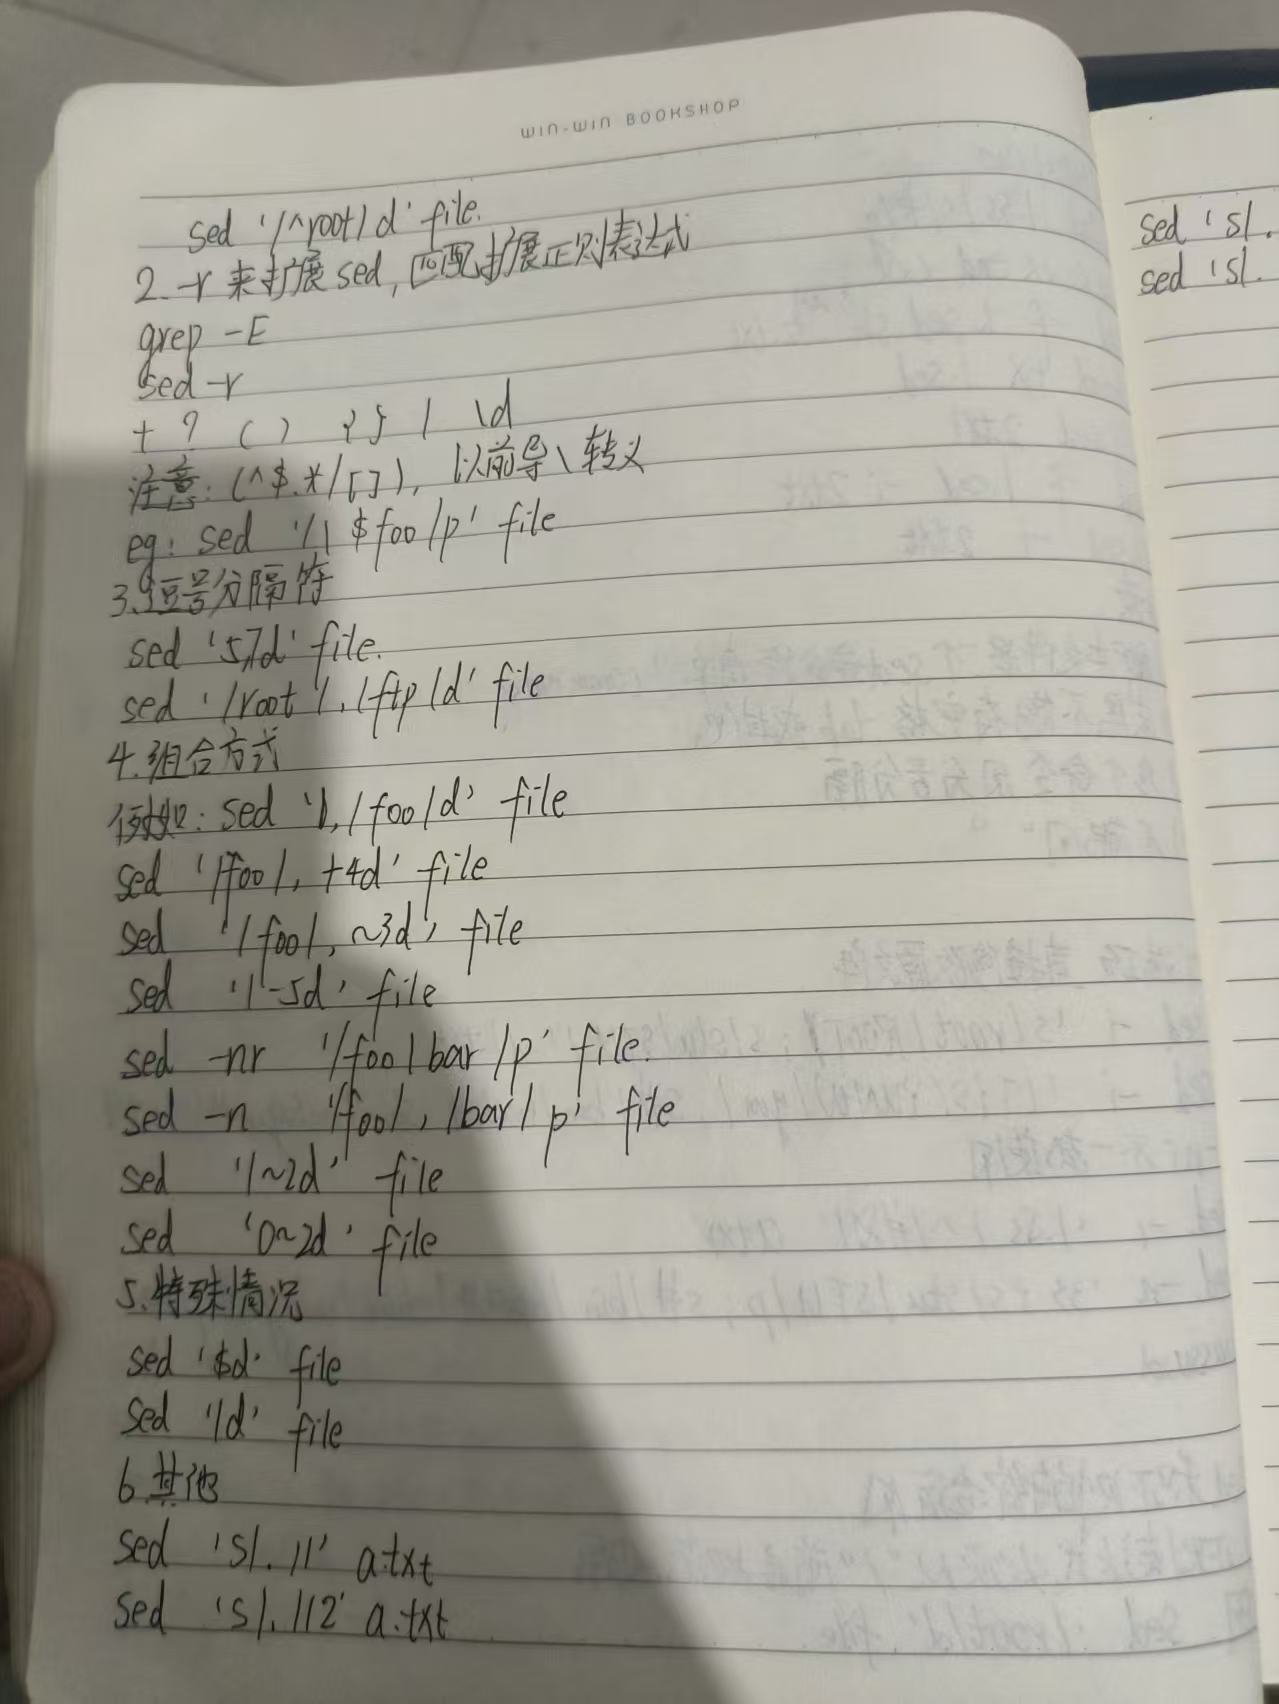 WIN-WIN BOOKSHOP
sed '/^root/d' file.
2. -r 来扩展sed, 匹配扩展正则表达式
grep -E
sed -r
+ ? ( ) { } | \d
注意: (^$.*/[]), 以前导\转义
eg: sed '/\$foo/p' file
3.逗号分隔符
sed '5,7d' file.
sed '/root/,/ftp/d' file
4.组合方式
例如: sed '1,/foo/d' file
sed '/foo/,+4d' file
sed '/foo/,~3d' file
sed '1-5d' file
sed -nr '/foo|bar/p' file.
sed -n '/foo/,/bar/p' file
sed '1~2d' file
sed '0~2d' file
5.特殊情况
sed '$d' file
sed '1d' file
6.其他
sed 's/.//' a.txt
sed 's/.//2' a.txt
sed 's/.
sed 's/.